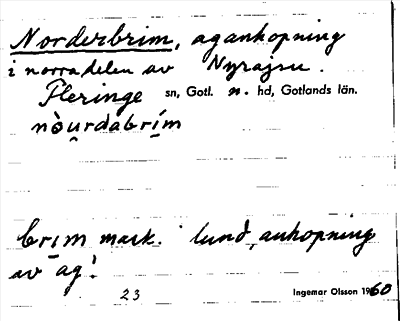 Norderbrim, aganhopning
i norra delen av Nyrajsu.
Fleringe sn, Gotl. n. hd, Gotlands län.
nòu̯rdabrím
brim mark. lund, anhopning
av ag!
23 Ingemar Olsson 1960